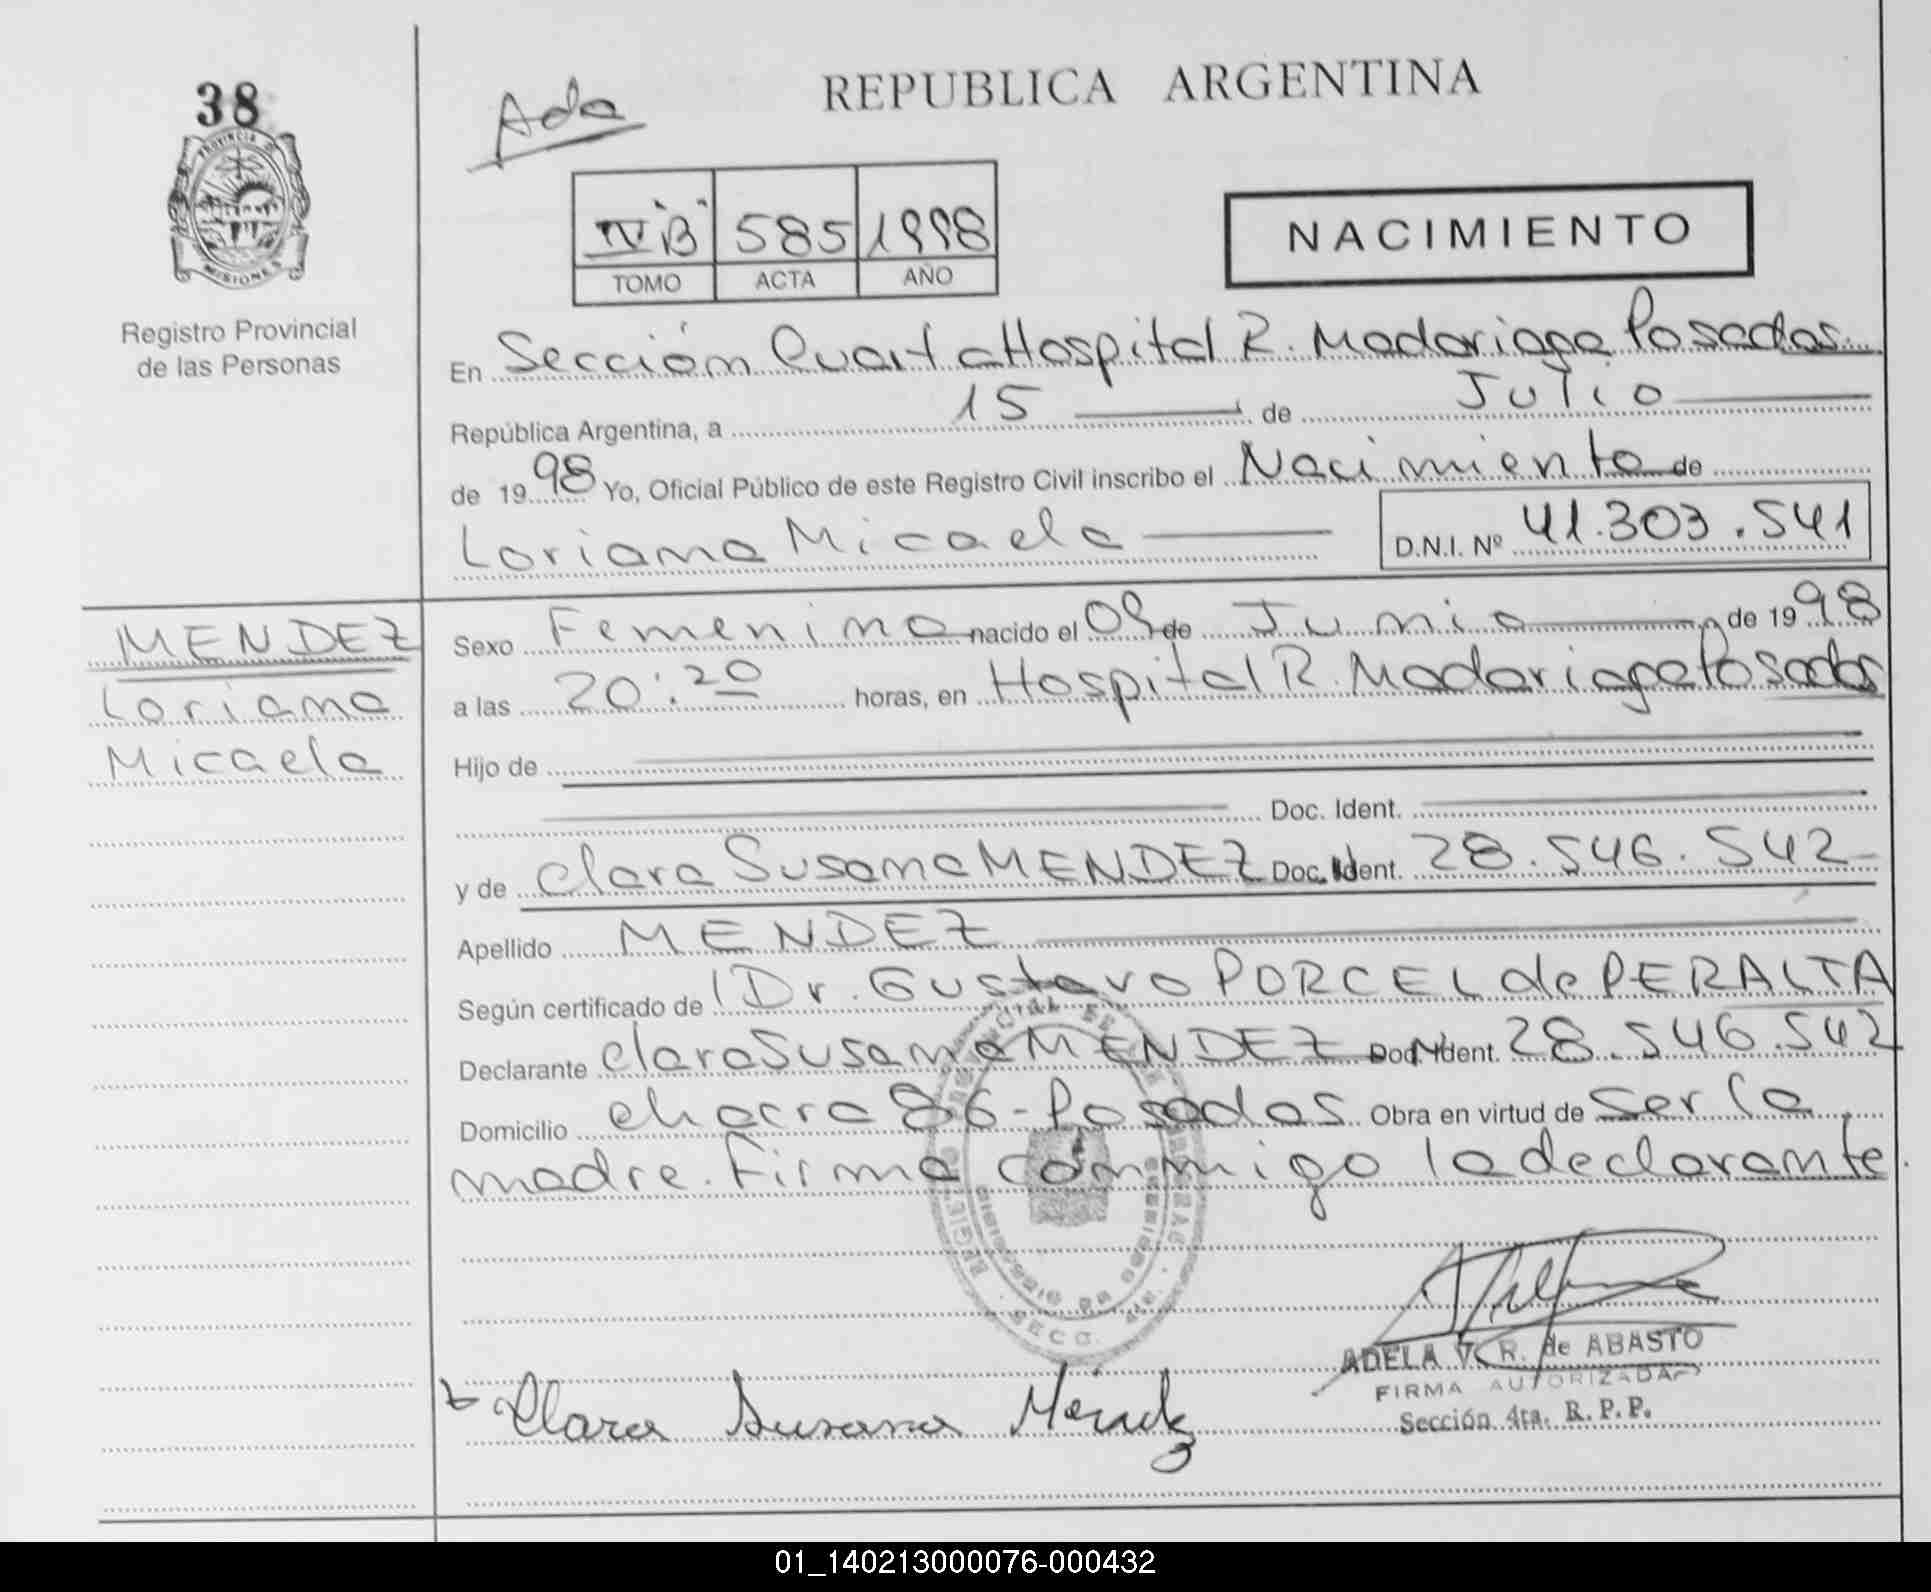 38
Ada
REPUBLICA ARGENTINA
PROVINCIA DE
MISIONES
Registro Provincial
de las Personas
IV "B" 585 1998
TOMO ACTA AÑO
NACIMIENTO
En Sección Cuarta Hospital R. Madariaga Posadas
República Argentina, a 15 de Julio
de 1998 Yo, Oficial Público de este Registro Civil inscribo el Nacimiento de
Loriana Micaela D.N.I. Nº 41.303.541
MENDEZ
Loriana
Micaela
Sexo Femenino nacido el 09 de Junio de 1998
a las 20:20 horas, en Hospital R. Madariaga Posadas
Hijo de
Doc. Ident.
y de Clara Susana MENDEZ Doc. Ident. 28.546.542
Apellido MENDEZ
Según certificado de Dr. Gustavo PORCEL de PERALTA
Declarante Clara Susana MENDEZ Doc. Ident. 28.546.542
Domicilio chacra 86 - Posadas Obra en virtud de ser la
madre. Firma conmigo la declarante.
ADELA V. R. de ABASTO
FIRMA AUTORIZADA
Sección 4ta. R. P. P.
Clara Susana Méndez
01_140213000076-000432